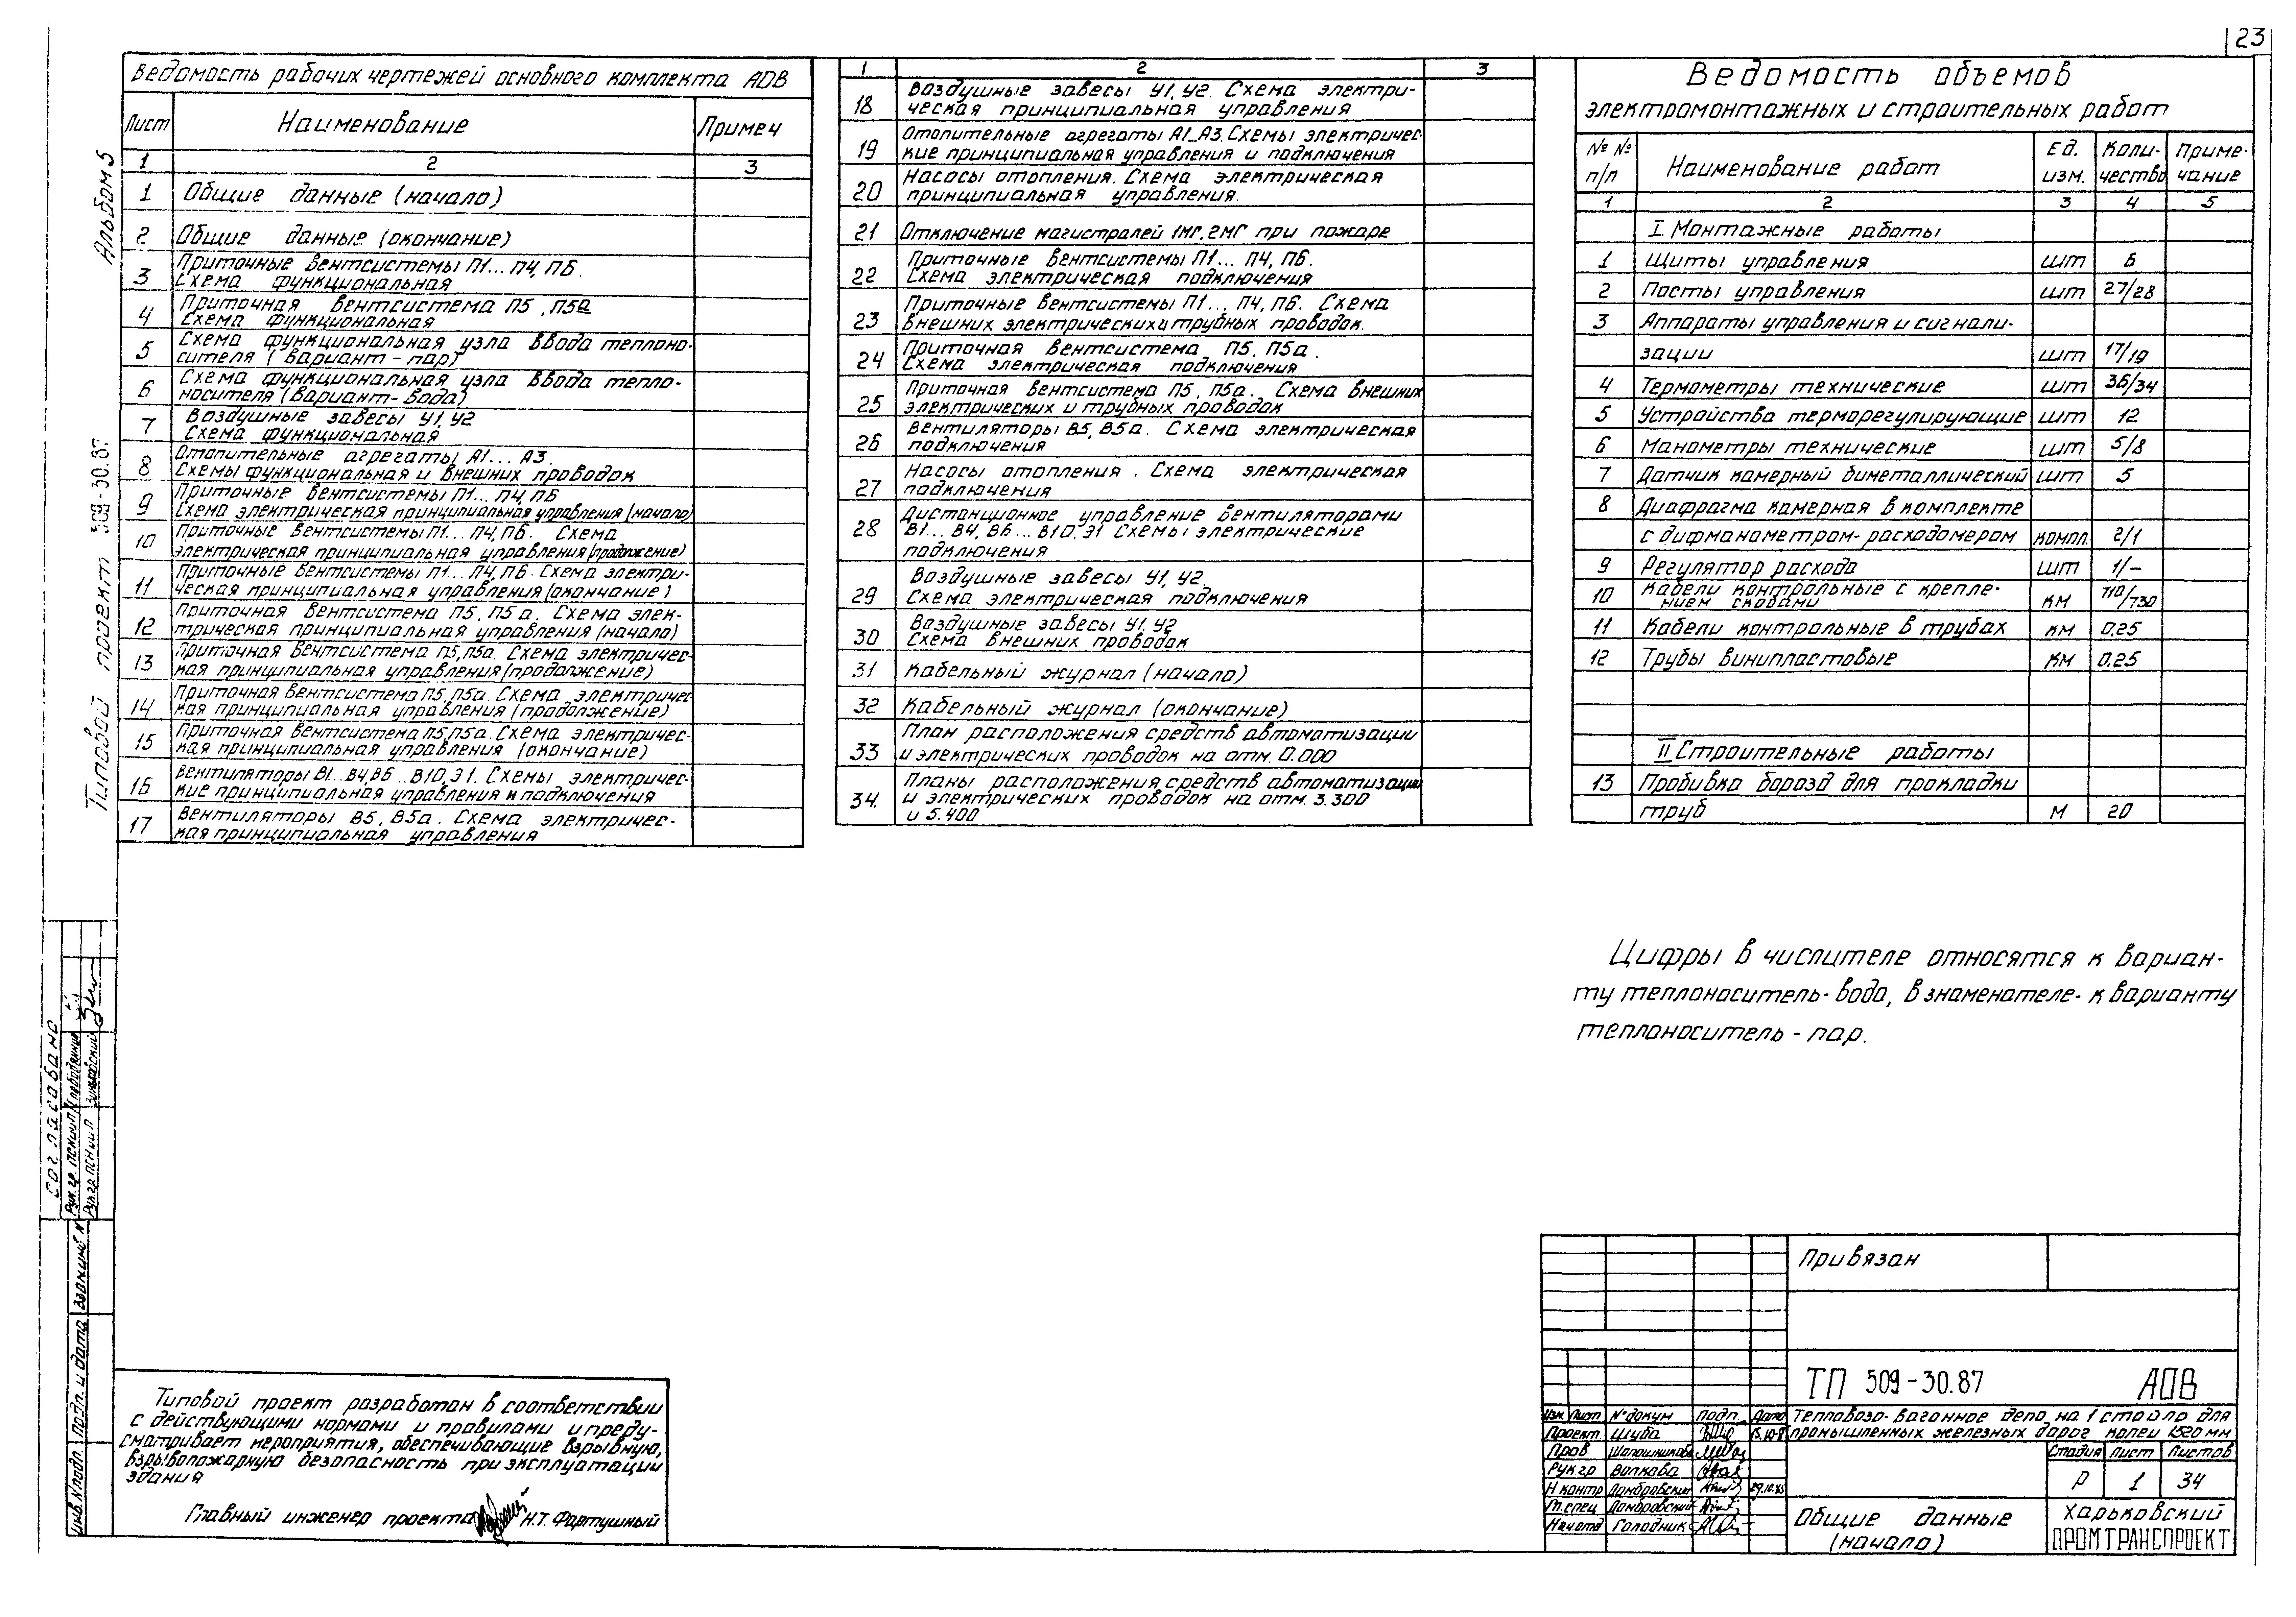 23
Ведомость рабочих чертежей основного комплекта АОВ
Лист Наименование Примеч
1 2 3
1 Общие данные (начало)
2 Общие данные (окончание)
3 Приточные вентсистемы П1... П4, П6.
Схема функциональная
4 Приточная вентсистема П5, П5а
Схема функциональная
5 Схема функциональная узла ввода теплоно-
сителя (вариант - пар)
6 Схема функциональная узла ввода тепло-
носителя (вариант - вода)
7 Воздушные завесы У1, У2
Схема функциональная
8 Отопительные агрегаты А1... А3.
Схемы функциональная и внешних проводок
9 Приточные вентсистемы П1... П4, П6
Схема электрическая принципиальная управления (начало)
10 Приточные вентсистемы П1... П4, П6. Схема
электрическая принципиальная управления (продолжение)
11 Приточные вентсистемы П1... П4, П6. Схема электри-
ческая принципиальная управления (окончание)
12 Приточная вентсистема П5, П5а. Схема элек-
трическая принципиальная управления (начало)
13 Приточная вентсистема П5, П5а. Схема электричес-
кая принципиальная управления (продолжение)
14 Приточная вентсистема П5, П5а. Схема электричес-
кая принципиальная управления (продолжение)
15 Приточная вентсистема П5, П5а. Схема электричес-
кая принципиальная управления (окончание)
16 Вентиляторы В1...В4, В6...В10, Э1. Схемы электричес-
кие принципиальная управления и подключения
17 Вентиляторы В5, В5а. Схема электричес-
кая принципиальная управления
1 2 3
18 Воздушные завесы У1, У2. Схема электри-
ческая принципиальная управления
19 Отопительные агрегаты А1...А3. Схемы электричес-
кие принципиальная управления и подключения
20 Насосы отопления. Схема электрическая
принципиальная управления.
21 Отключение магистралей 1МГ, 2МГ при пожаре
22 Приточные вентсистемы П1... П4, П6.
Схема электрическая подключения
23 Приточные вентсистемы П1... П4, П6. Схема
внешних электрических и трубных проводок.
24 Приточная вентсистема П5, П5а.
Схема электрическая подключения
25 Приточная вентсистема П5, П5а. Схема внешних
электрических и трубных проводок
26 Вентиляторы В5, В5а. Схема электрическая
подключения
27 Насосы отопления. Схема электрическая
подключения
28 Дистанционное управление вентиляторами
В1... В4, В6... В10, Э1 Схемы электрические
подключения
29 Воздушные завесы У1, У2.
Схема электрическая подключения
30 Воздушные завесы У1, У2
Схема внешних проводок
31 Кабельный журнал (начало)
32 Кабельный журнал (окончание)
33 План расположения средств автоматизации
и электрических проводок на отм. 0.000
34. Планы расположения средств автоматизации
и электрических проводок на отм. 3.300
и 5.400
Ведомость объемов
электромонтажных и строительных работ
№ № п/п Наименование работ Ед. изм. Коли- чество Приме- чание
1 2 3 4 5
I. Монтажные работы
1 Щиты управления шт 6
2 Посты управления шт 27/28
3 Аппараты управления и сигнали-
зации шт 17/19
4 Термометры технические шт 36/34
5 Устройства терморегулирующие шт 12
6 Манометры технические шт 5/8
7 Датчик камерный биметаллический шт 5
8 Диафрагма камерная в комплекте
с дифманометром-расходомером компл. 2/1
9 Регулятор расхода шт 1/-
10 Кабели контрольные с крепле-
нием скобами км 710/730
11 Кабели контрольные в трубах км 0.25
12 Трубы винипластовые км 0.25
II Строительные работы
13 Пробивка борозд для прокладки
труб м 20
Цифры в числителе относятся к вариан-
ту теплоноситель-вода, в знаменателе-к варианту
теплоноситель - пар.
Альбом 5
Типовой проект 509-30.87
Согласовано
Рук. гр.
Рук. гр.
Взам. инв. N
Подп. и дата
Инв. N подл.
Типовой проект разработан в соответствии
с действующими нормами и правилами и преду-
сматривает мероприятия, обеспечивающие взрывную,
взрывопожарную безопасность при эксплуатации
здания
Главный инженер проекта Н.Т. Фартушный
Привязан
ТП 509-30.87 АОВ
Изм. Лист № докум Подп. Дата
Проект. Шуба
Пров Шапошникова
Рук.гр Волкова
Н контр Домбровский 29.10.85
Гл.спец Домбровский
Нач отд Голодник
Тепловозо-вагонное депо на 1 стойло для
промышленных железных дорог колеи 1520 мм
Стадия Лист Листов
Р 1 34
Общие данные
(начало)
Харьковский
ПРОМТРАНСПРОЕКТ